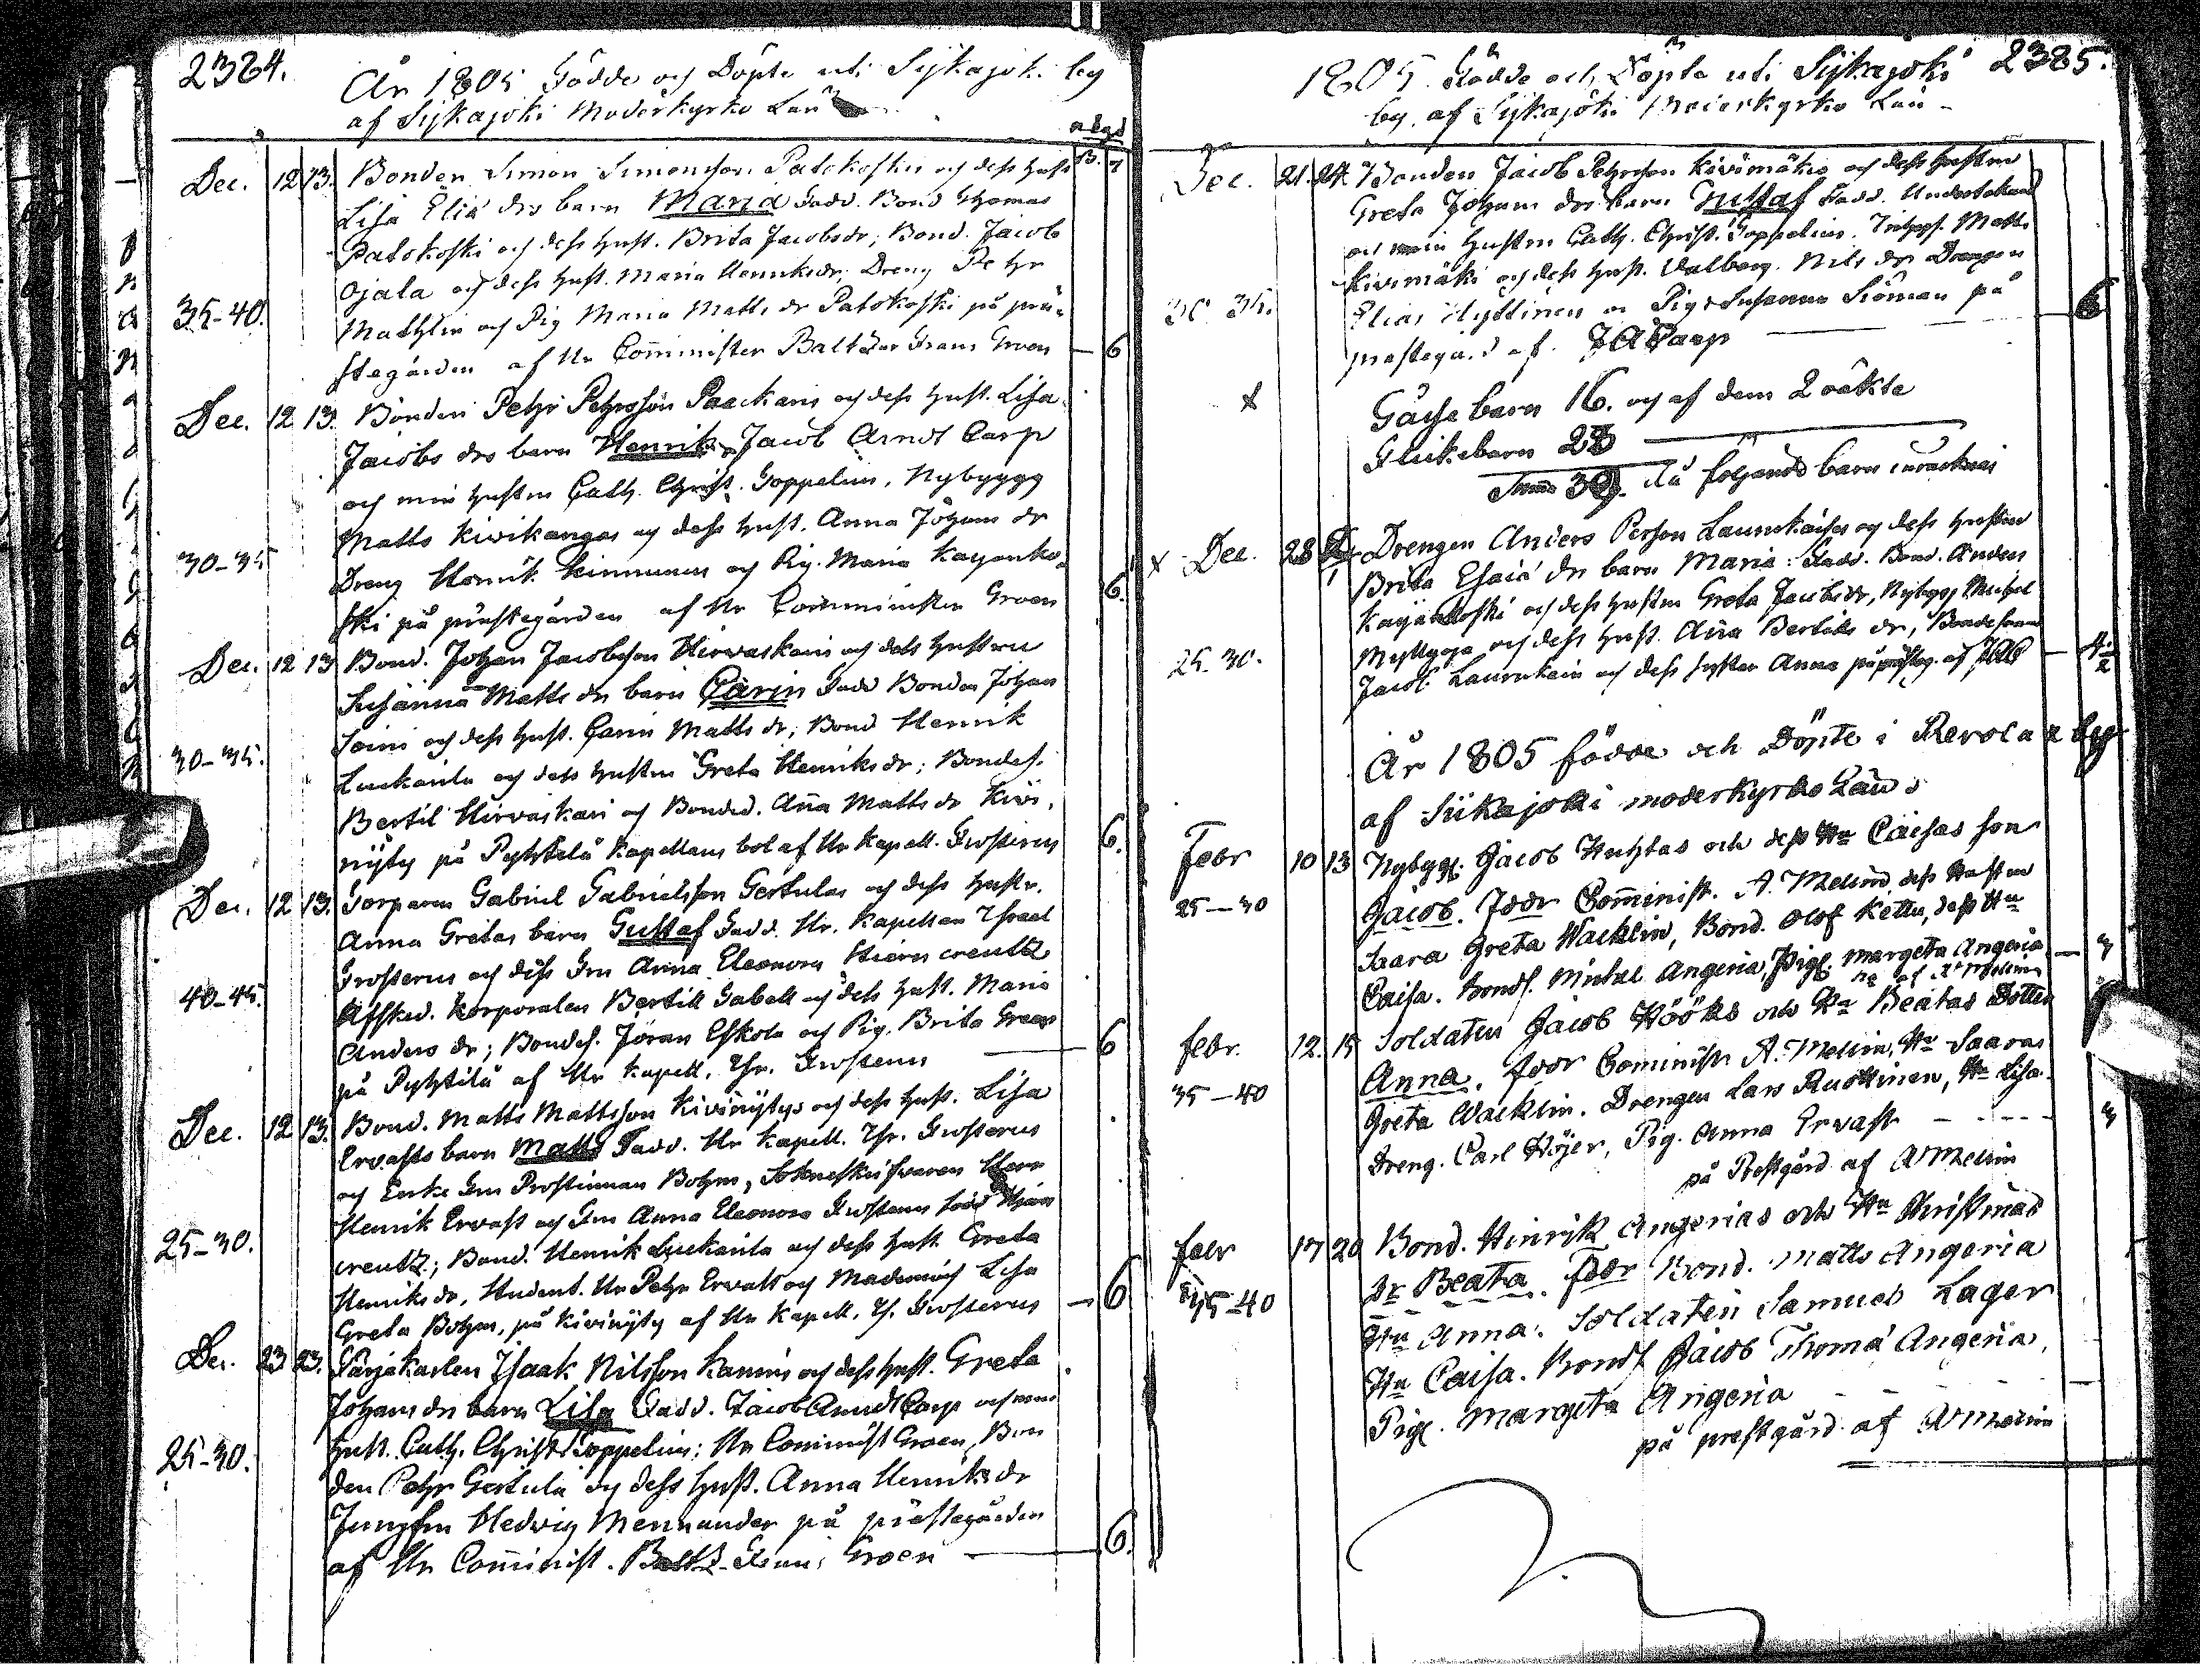 2384.
År 1805 Födde och Döpte uti Sijkajoki by
af Sijkajoki Moderkyrko Län
Dec. 12 13. Bonden Simon Simonsson Patokoskis och dess hust.
Lisa Eliæ drs barn Maria Fadd. Bond Thomas
Patokoski och dess hust. Brita Jacobs dr; Bond. Jacob
Ojala och dess hust. Maria Henriks dr; Dreng Petr
35-40. Mathlin och Pig Maria Matts dr Patokoski på prä-
stegården af Hr Comminister Balthzar Frans Groen 6
Dec. 12 13. Bonden Pehr Pehrsson Paackaris och dess hust. Lisa
Jacobs drs barn Henrik, Jacob Arndt Carp
och min hustru Cath. Christ. Toppelius, Nybygg
Matts Kivikangas och dess hust. Anna Johans dr
30-35 Dreng Henrik Kinnunen och Pig. Maria Kayanko-
ski på prästegården af Hr Comminister Groen 6.
Dec. 12 13 Bond. Johan Jacobsson Hirvaskaris och dess hustru
Susanna Matts drs barn Carin Fadd Bonden Johan
Soini och dess hust. Carin Matts dr; Bond Henrik
30-35. Luckarila och dess hustru Greta Henriks dr; Bondes.
Bertil Hirvaskari och Bonded. Aña Matts dr Kivi-
nijty på Pyhtilä Kapellans bol af Hr Kapell. Frosterus 6.
Dec. 12 13. Torparen Gabriel Gabrielsson Gertulas och dess hustr.
Anna Gretas barn Gustaf Fadd. Hr. Kapellan Israel
Frosterus och dess Fru Anna Eleonora Stiern creutz
40-45. Afsked. Korporalen Bertill Gabell och dess hust. Maria
Anders dr; Bondes. Jöran Eskola och Pig. Brita
på Pyhtilä af Hr Kapell. Isr. Frosterus 6
Dec. 12 13. Bond. Matts Mattsson Kivinijtys och dess hust. Lisa
Ervasts barn Matts Fadd. Hr Kapell. Isr. Frosterus
och Enke Fru Prostinnan Bohm,
Henrik Ervast och Fru Anna Eleonora Frosterus född
25-30. creutz; Bond. Henrik Luckarila och dess hust Greta
Henriks dr, Student. Hr Pehr Ervast och Lisa
Greta Bohm, på Kivinijty af Hr Kapell. Is. Frosterus 6
Dec. 23 23. Isaak Nilsson Kannis och dess hust. Greta
Johans drs barn Lisa Fadd. Jacob Arndt Carp och min
25-30. hust. Cath. Christ. Toppelius; Hr Cominist Groen, Bon
den Pehr Gertula och dess hust. Anna Henriks dr
Jungfru Hedvig Mennander på prästegården
af Hr Com̃inist. Baltz. Frans Groen 6.
1805. Födde och Döpte uti Sijkajoki 2385.
by af Sijkajoki Moderkyrko Län
Dec. 21. 24. Bonden Jacob Pehrsson Kivimäkis och dess hustru
Greta Johans drs barn Gustaf Fadd. Undertecknad
och min hustru Cath. Christ. Toppelius. Matts
Kivimäki och dess hust. Valborg. Nils dr Drengen
30 35. Elias Hyttinen o Pig Susanna Siöman på
prestegård af JACarp 6
Gåsse barn 16. och af dem 2 oäkte
Flickebarn 23
Summa 39. då följande barn
x Dec. 28 Drengen Anders Persson Launukaises och dess hustru
Brita Esaiæ drs barn Maria: Fadd. Bond. Anders
Kayankoski och dess hustru Greta Jacobs dr, Nybygg Michel
Myllyoja och dess hust. Aña Bertils dr, Bondeson
25-30. Jacob Launukain och dess syster Anna på prästeg. af JAC
År 1805 födde och Döpte i Revola by
af Siikajoki moderkyrko Län
Febr 10 13 Nybygg. Jacob Huhtas och dess Hu Caisas son
25-30 Jacob. Fddr Com̃inist. A. Melin dess Hustru
Saara Greta Wacklin, Bond. Olof Kettu, dess Hu
Caisa. Bonds. Michel Angeria, Pigl. Margeta Angeria 3
af A Melin
febr. 12. 15 Soldaten Jacob Hööks och Hu Beatas Dotter
Anna. Fddr Cominist. A. Melin, Hu Saara
35-40 Greta Wacklin. Drengen Lars Ruottinen, Hu Lisa.
Dreng. Carl Höjer, Pig. Anna Ervast 3
på Prestgård af A Melin
febr 17 20 Bond. Hinrik Angerias och Hu Kristinas
Dr Beata. Fddr Bond. Matts Angeria
35-40 Hu Anna. Soldaten Samuel Lager
Hu Caisa. Bonds Jacob Thomæ Angeria,
Pigl. Margeta Angeria
på prestgård af A Melin